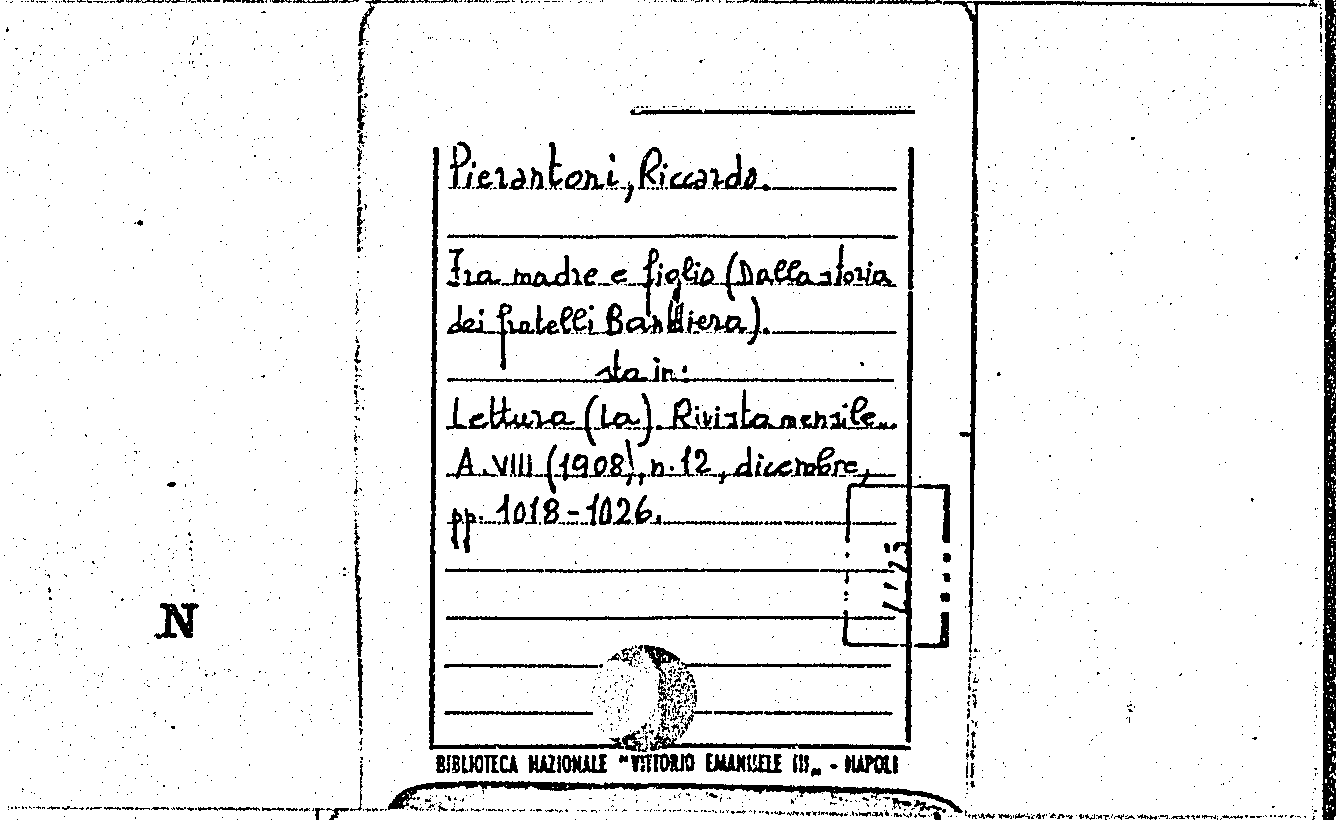 Pierantoni, Riccardo.
Fra madre e figlio (Dalla storia
dei fratelli Bandiera).
sta in:
Lettura (La). Rivista mensile...
A. VIII (1908), n. 12, dicembre,
pp. 1018-1026.
N
BIBLIOTECA NAZIONALE "VITTORIO EMANUELE III„ - NAPOLI